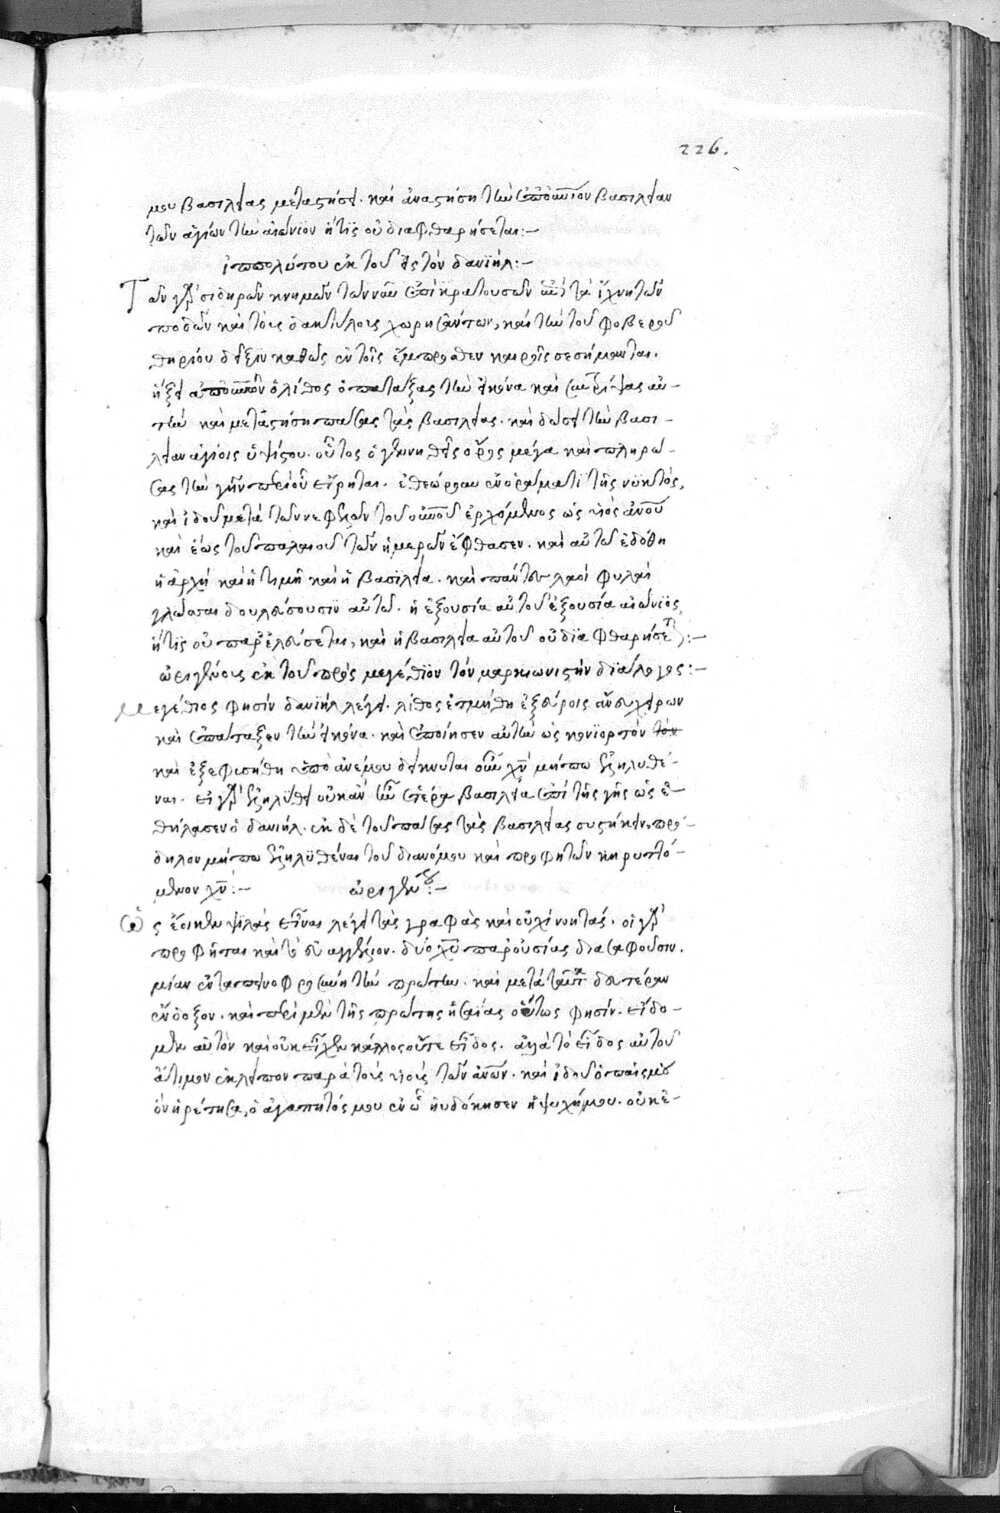 226.
μου βασιλείας μεταστήσει. καὶ ἀναστήση τὴν ἐπουράνιον βασιλείαν
τῶν ἁγίων τὴν αἰώνιον ἥτις οὐ διαφθαρήσεται:–
ἱππολύτου ἐκ τοῦ εἰς τὸν δανιήλ:–
Τῶν γὰρ σιδηρῶν κνημῶν τῶν νῦν ἐπικρατουσῶν ἐπὶ τὰ ἴχνη τῶν
ποδῶν καὶ τοὺς δακτύλους χωρησάντων, καὶ τὴν τοῦ φοβεροῦ
θηρίου δεῖξιν καθὼς ἐν τοῖς ἔμπροσθεν καιροῖς σεσήμανται.
ἥξει ἀπ' οὐρανῶν ὁ λίθος ὁ πατάξας τὴν εἰκόνα καὶ συντρίψας αὐ–
τὴν καὶ μεταστήση πάσας τὰς βασιλείας. καὶ δώσει τὴν βασι–
λείαν ἁγίοις ὑψίστου. οὗτος ὁ γεννηθεὶς ὄρος μέγα καὶ πληρώ–
σας τὴν γῆν περὶ οὗ εἴρηται. ἐθεώρουν ἐν ὁράματι τῆς νυκτός,
καὶ ἰδοὺ μετὰ τῶν νεφελῶν τοῦ οὐνοῦ ἐρχόμενος ὡς υἱὸς ἀνοῦ
καὶ ἕως τοῦ παλαιοῦ τῶν ἡμερῶν ἔφθασεν. καὶ αὐτῶ ἐδόθη
ἡ ἀρχὴ καὶ ἡ τιμὴ καὶ ἡ βασιλεία. καὶ πάντες λαοὶ φυλαὶ
γλῶσσαι δουλεύσουσιν αὐτῶ. ἡ ἐξουσία αὐτοῦ ἐξουσία αἰώνιος,
ἥτις οὐ παρελεύσεται, καὶ ἡ βασιλεία αὐτοῦ οὐ διαφθαρήσεται:–
ὠριγένους ἐκ τοῦ πρὸς μεγέθιον τὸν μαρκιωνιστὴν διαλόγος:–
Μεγέθιος φησὶν δανιὴλ λέγει. λίθος ἐτμήθη ἐξ ὄρους ἄνευ χειρῶν
καὶ ἐπάταξεν τὴν εἰκόνα. καὶ ἐποίησεν αὐτὴν ὡς κονιορτὸν τὸν
καὶ ἐξεφυσήθη ὑπὸ ἀνέμου δείκνυται οὖν χν μήπω ἐληλυθέ–
ναι. εἰ γὰρ ἐληλύθει οὐκ ἂν ἦν ἑτέρα βασιλεία ἐπὶ τῆς γῆς ὡς ἐ–
δήλωσεν ὁ δανιήλ. ἐκ δὲ τοῦ πάσας τὰς βασιλείας συστήκειν, πρό–
δηλον μήπω ἐληλυθέναι τοῦ διανόμου καὶ προφητῶν κηρυττό–
μενον χν:– ὠριγένους:–
Ὡς ἔοικεν ψιλὰς εἶναι λέγει τὰς γραφὰς καὶ οὐχὶ νοητάς. οἱ γὰρ
προφῆται καὶ τὸ εὐαγγέλιον. δύο χυ παρουσίας διασαφοῦσιν.
μίαν ἐν ταπεινοφροσύνη τὴν πρώτην. καὶ μετὰ ταῦτα δευτέραν
ἔνδοξον. καὶ περὶ μὲν τῆς πρώτης ἡσαΐας οὕτως φησίν. εἴδο–
μεν αὐτὸν καὶ οὐκ εἶχεν κάλλος οὔτε εἶδος. ἀλλὰ τὸ εἶδος αὐτοῦ
ἄτιμον ἐκλεῖπον παρὰ τοὺς υἱοὺς τῶν ἀνων. καὶ ἰδοὺ ὁ παῖς μου
ὃν ἡρέτησα, ὁ ἀγαπητός μου ἐν ὧ ηὐδόκησεν ἡ ψυχή μου. οὐκ ἐ–